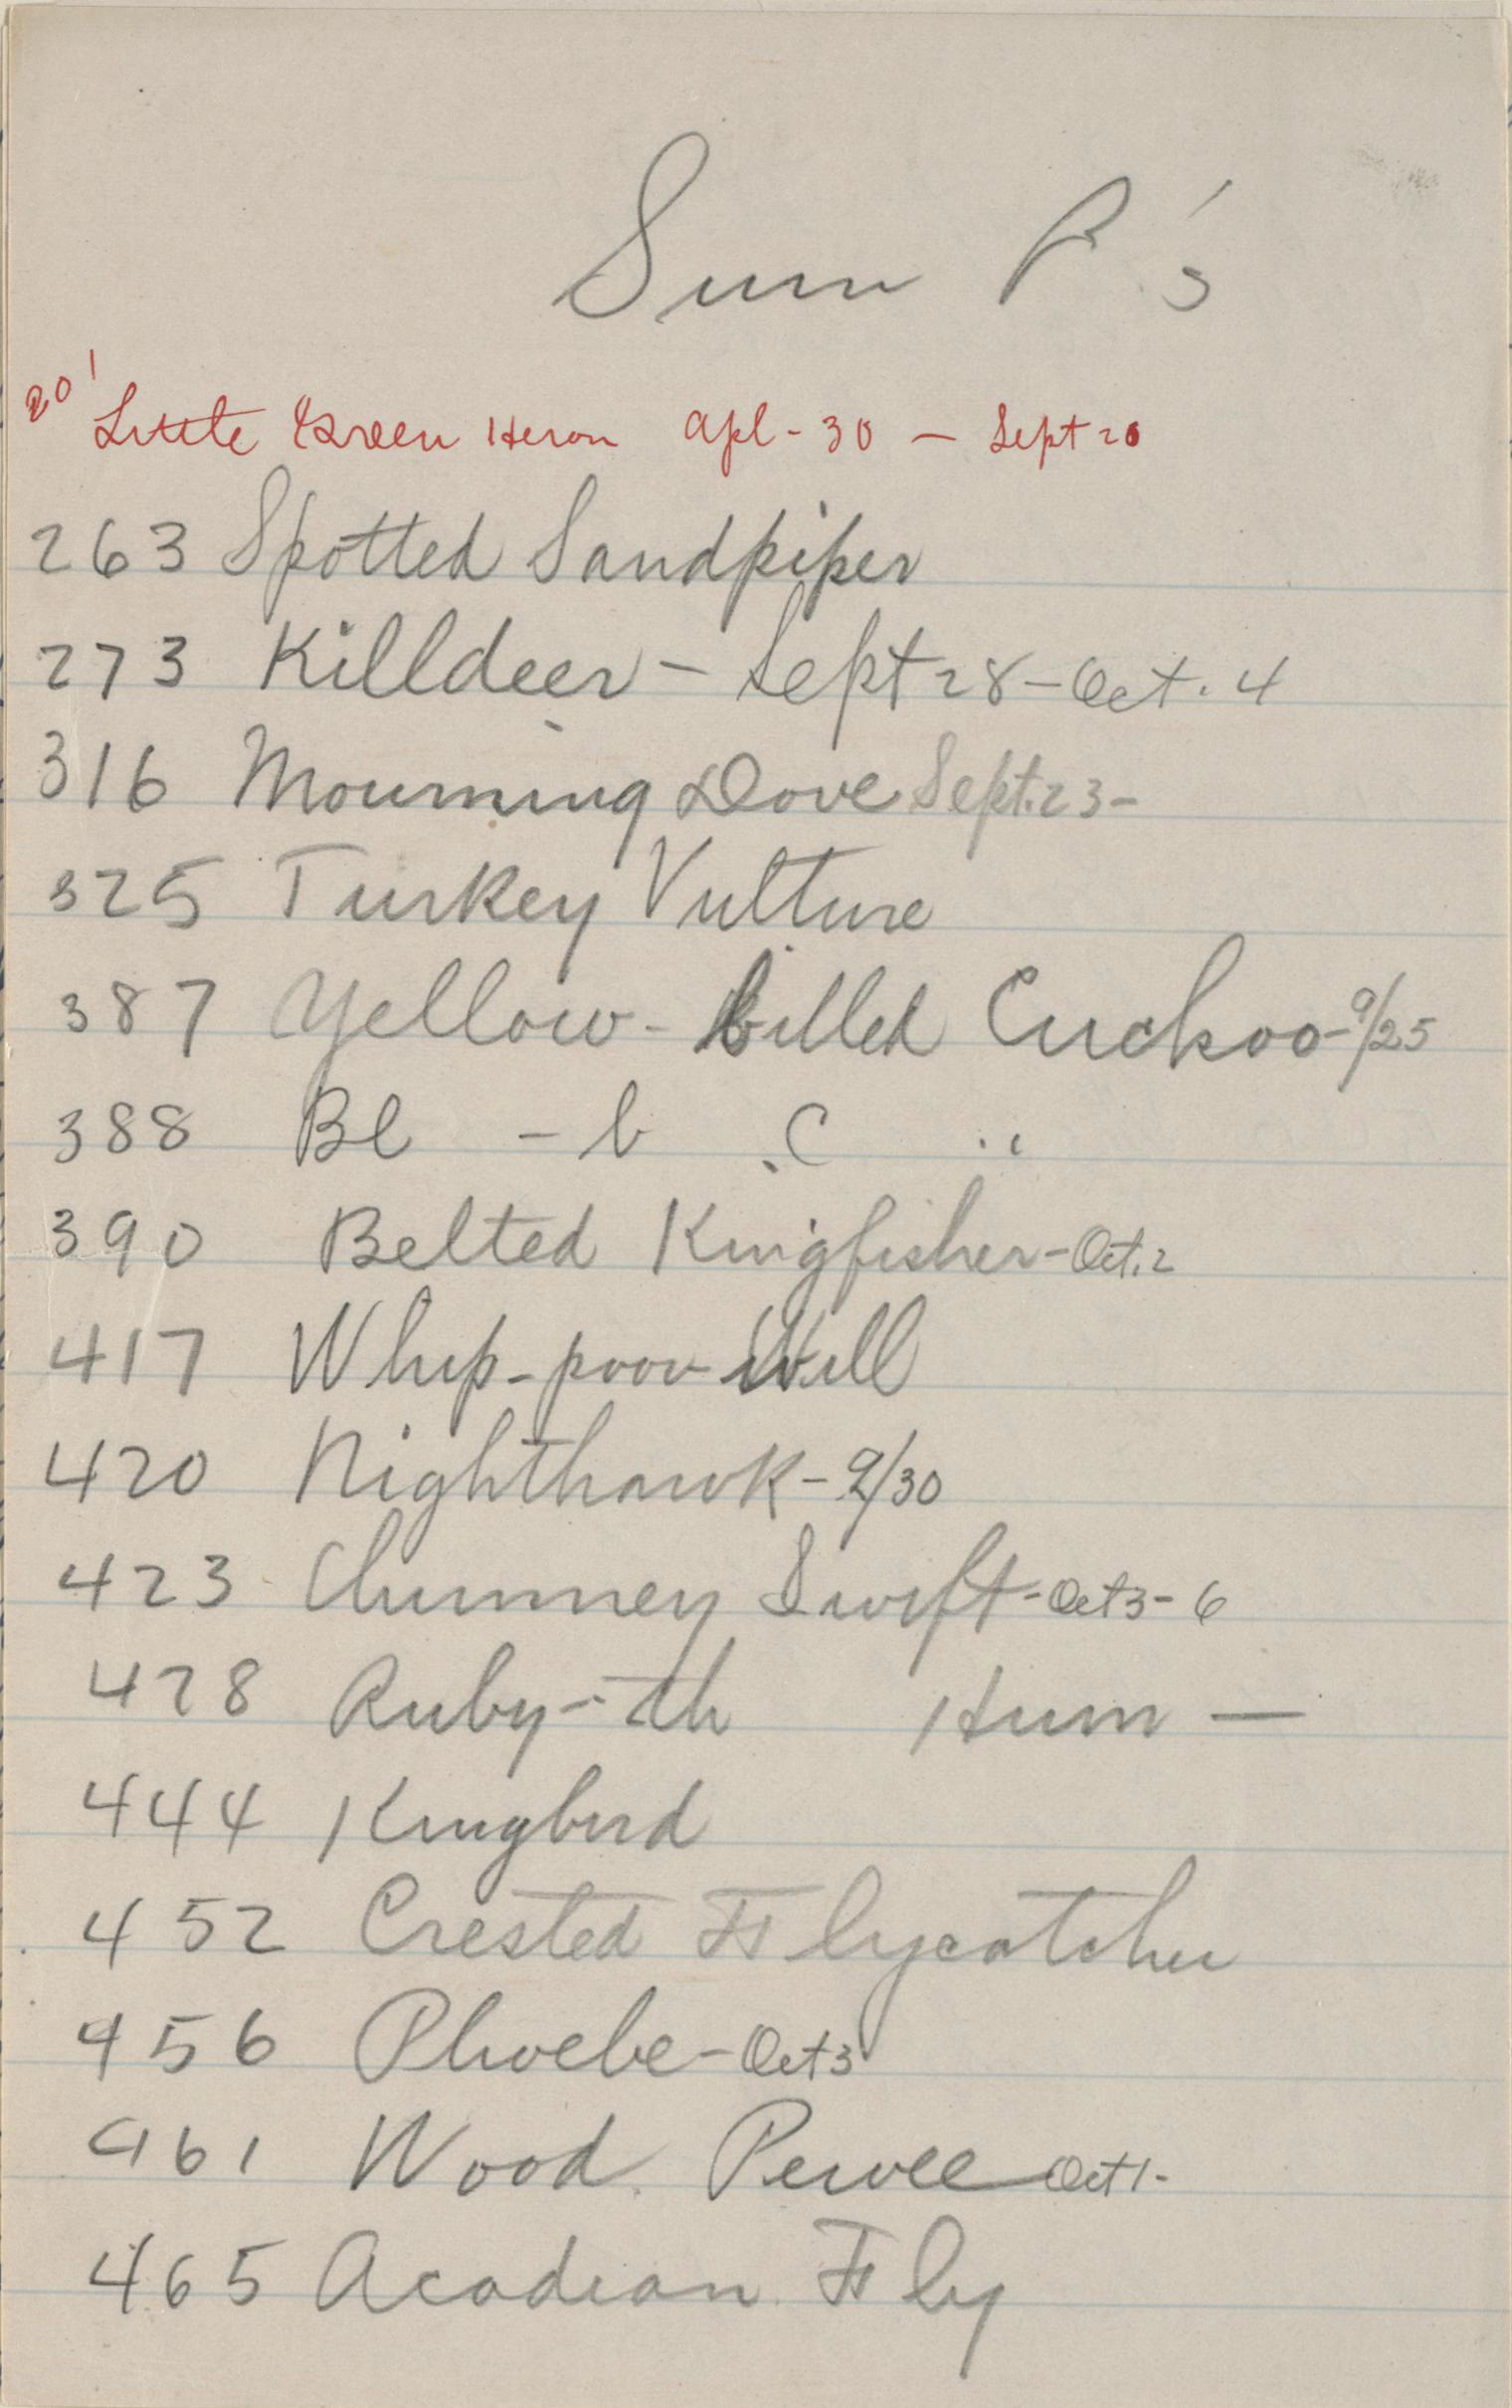 Sum R's
201 Little Green Heron Apl - 30 — Sept 20
263 Spotted Sandpiper
273 Killdeer - Sept 28 - Oct. 4
316 Mourning Dove Sept. 23 -
325 Turkey Vulture
387 Yellow-billed Cuckoo - 9/25
388 Bl - b C "
390 Belted Kingfisher - Oct. 2
417 Whip-poor-Will
420 Nighthawk - 9/30
423 Chimney Swift - Oct 3 - 6
428 Ruby-th Hum —
444 Kingbird
452 Crested Flycatcher
456 Phoebe - Oct 3
461 Wood Pewee Oct 1 -
465 Acadian Fly